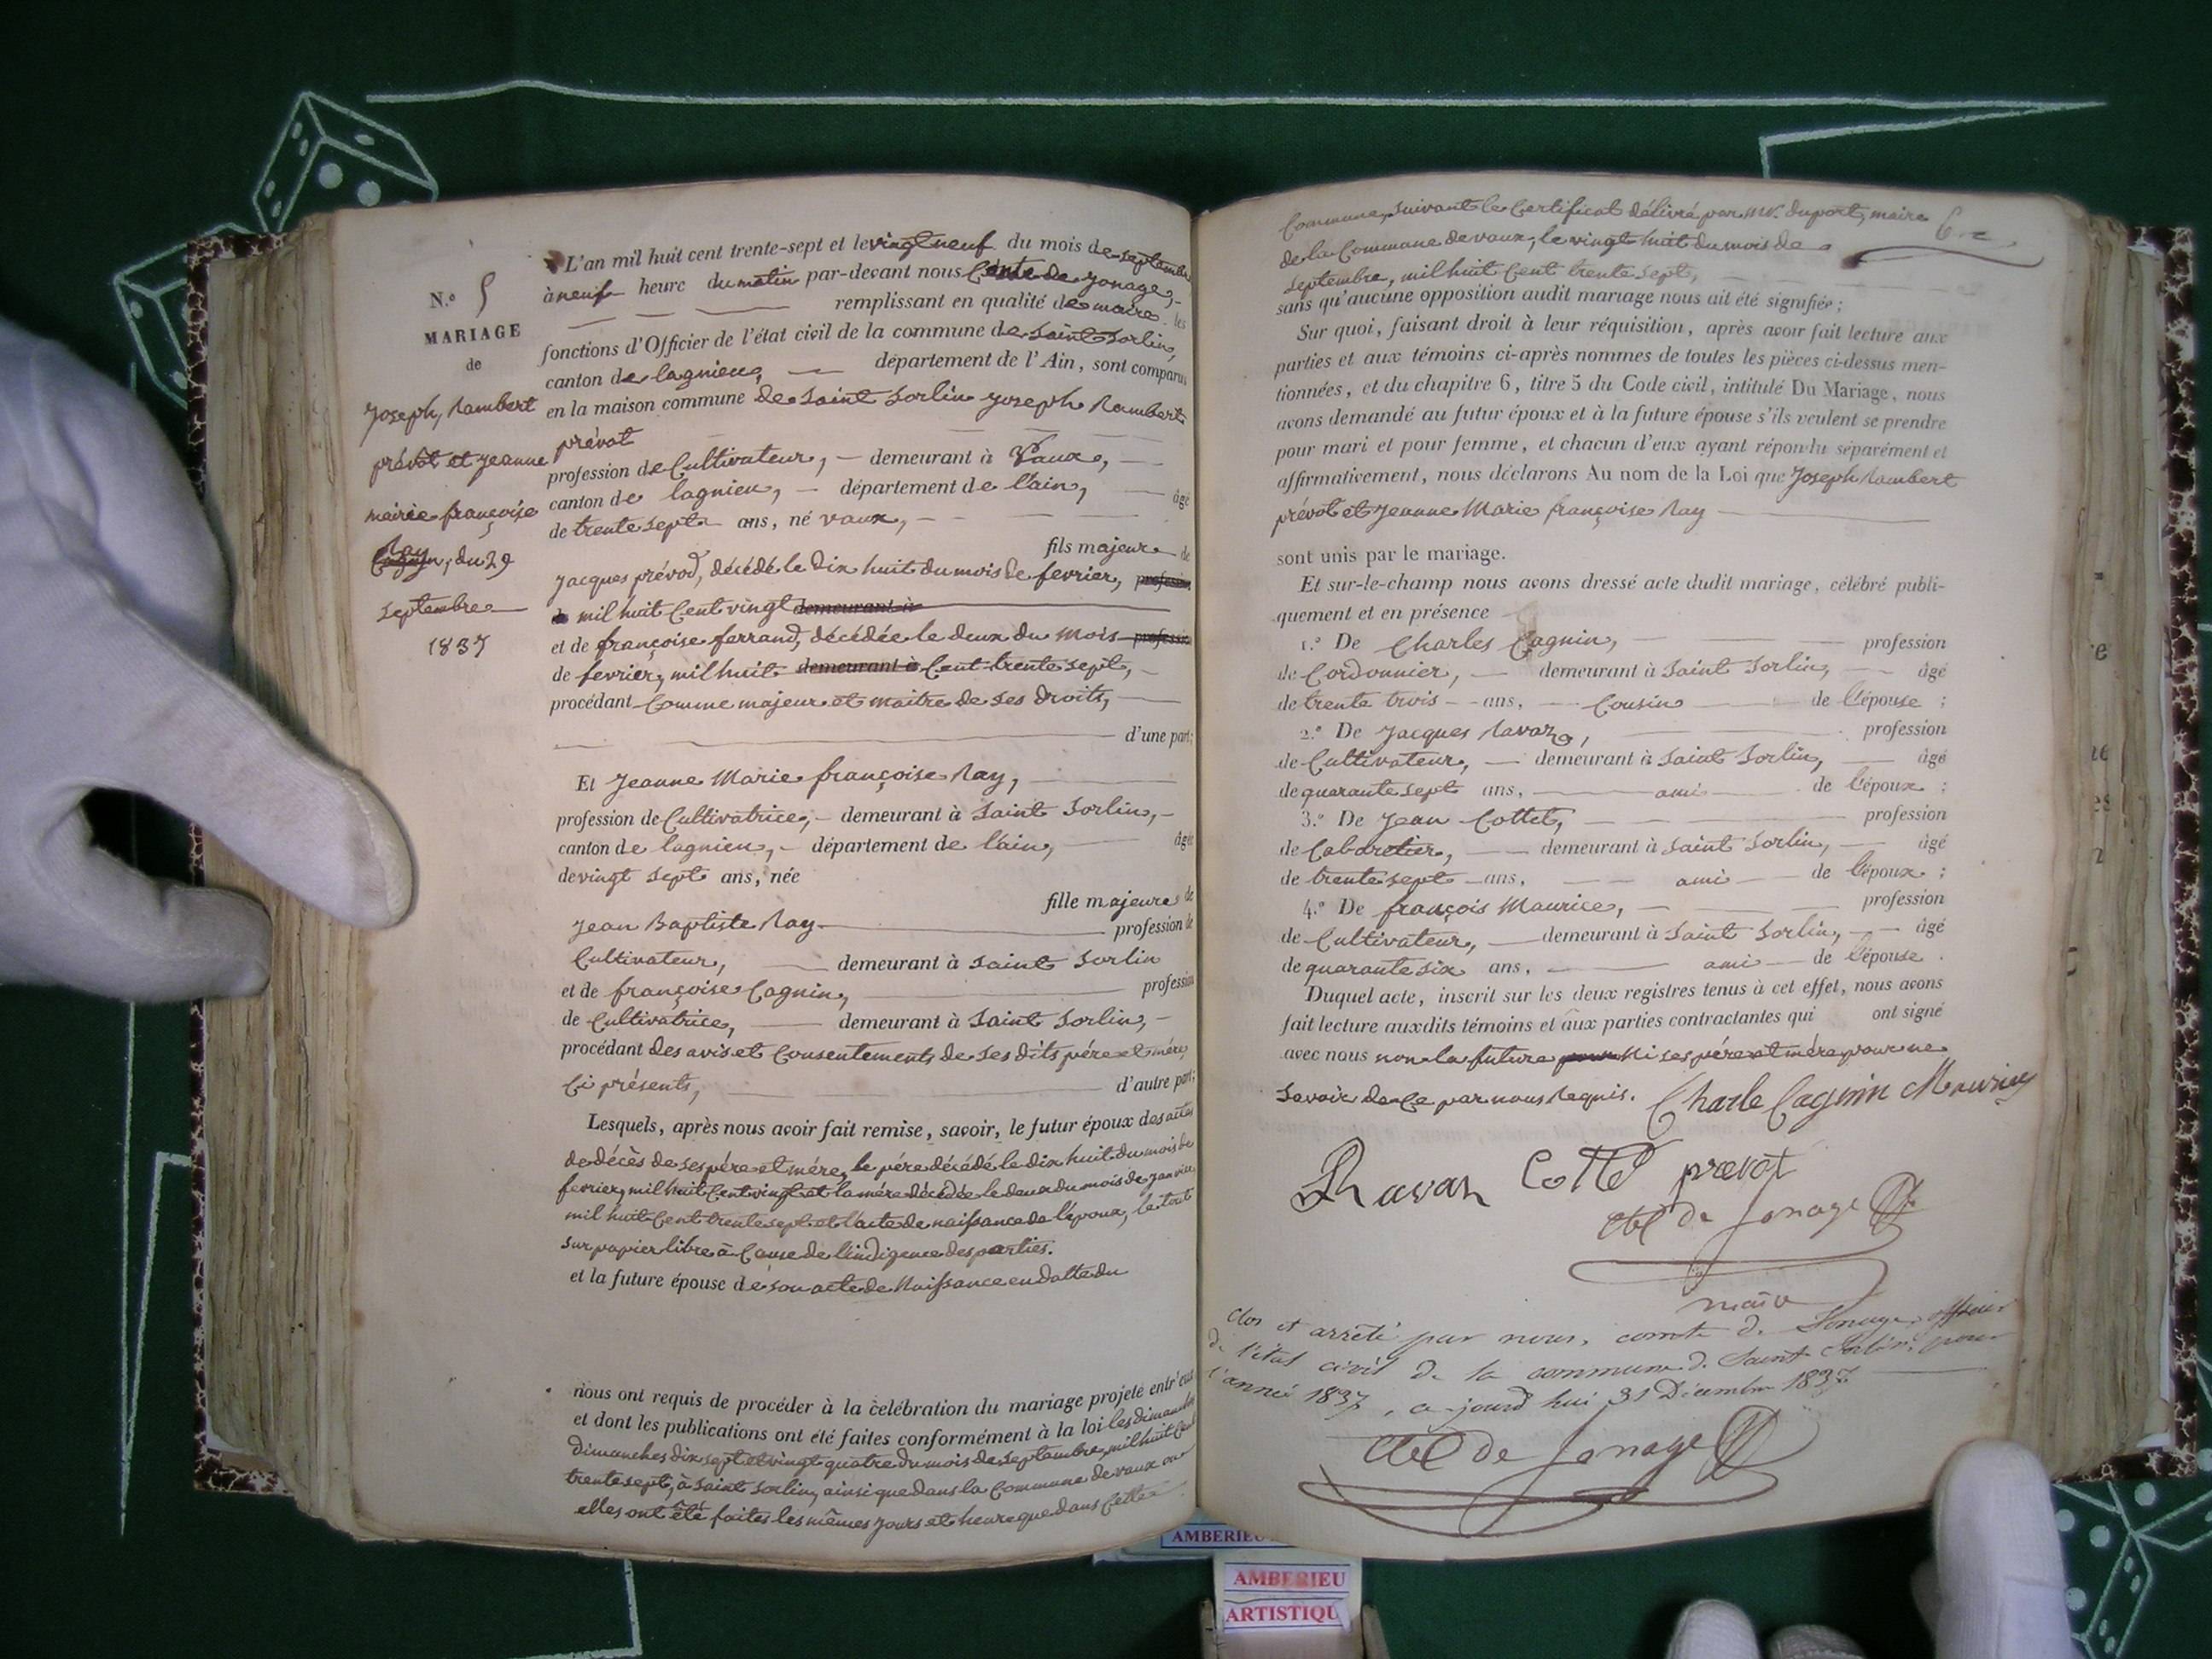 N.º 5
MARIAGE
de
Joseph, Rambert
prévot et Jeanne
mairie françoise
Ray
, du 29
septembre
1837
L'an mil huit cent trente-sept et le vingt neuf du mois de septembre
à neuf heure du matin par-devant nous Comte de Jonage,
remplissant en qualité de maire les
fonctions d'Officier de l'état civil de la commune de Saint Sorlin,
canton de lagnieu, département de l'Ain, sont comparus
en la maison commune de Saint Sorlin Joseph Rambert
prévot
profession de Cultivateur, demeurant à Vaux,
canton de lagnieu, département de l'ain, âgé
de trente sept ans, né vaux,
fils majeur de
Jacques prévod, décédé le dix huit du mois de fevrier, profession
de mil huit Cent vingt demeurant à
et de françoise ferrand, décédée le deux du mois profession
de fevrier, mil huit demeurant à Cent trente sept,
procédant Comme majeur et maitre de ses droits,
d'une part;
Et Jeanne Marie françoise Ray,
profession de Cultivatrice, demeurant à Saint Sorlin,
canton de lagnieu, département de l'ain, âgée
de vingt sept ans, née
fille majeure de
Jean Baptiste Ray profession de
Cultivateur, demeurant à Saint Sorlin
et de françoise Cagnin, profession
de Cultivatrice, demeurant à Saint Sorlin,
procédant des avis et Consentements de ses dits père et mère,
Ci présents, d'autre part;
Lesquels, après nous avoir fait remise, savoir, le futur époux des actes
de décès de ses père et mére, le pére décédé le dix huit du mois de
fevrier, mil huit Cent vingt et la mére décédée le deux du mois de janvier
mil huit Cent trente sept et l'acte de naissance de l'époux, le tout
sur papier libre à Cause de l'indigence des parties.
et la future épouse de son acte de Naissance en datte du
nous ont requis de procéder à la célébration du mariage projeté entr'eux
et dont les publications ont été faites conformément à la loi les dimanches
dimanches dix sept et vingt quatre du mois de septembre, mil huit Cent
trente sept, à Saint Sorlin, ainsi que dans la Commune de vaux ou
elles ont été faites les mêmes jours et heure que dans Cette
6
Commune, Suivant le Certificat délivré par Mr. duport, maire
de la Commune de vaux, le vingt huit du mois de
septembre, mil huit Cent trente sept,
sans qu'aucune opposition audit mariage nous ait été signifiée;
Sur quoi, faisant droit à leur réquisition, après avoir fait lecture aux
parties et aux témoins ci-après nommes de toutes les pièces ci-dessus men-
tionnées, et du chapitre 6, titre 5 du Code civil, intitulé Du Mariage, nous
avons demandé au futur époux et à la future épouse s'ils veulent se prendre
pour mari et pour femme, et chacun d'eux ayant répondu séparément et
affirmativement, nous déclarons Au nom de la Loi que Joseph Rambert
prévot et Jeanne Marie françoise Ray
sont unis par le mariage.
Et sur-le-champ nous avons dressé acte dudit mariage, célébré publi-
quement et en présence
1.º De Charles Cagnin, profession
de Cordonnier, demeurant à Saint Sorlin, âgé
de trente trois ans, Cousin de l'épouse ;
2.º De Jacques Ravaz, profession
de Cultivateur, demeurant à Saint Sorlin, âgé
de quarante sept ans, ami de l'époux ;
3.º De Jean Cottet, profession
de Cabaretier, demeurant à Saint Sorlin, âgé
de trente sept ans, ami de l'époux ;
4.º De françois Maurice, profession
de Cultivateur, demeurant à Saint Sorlin, âgé
de quarante six ans, ami de l'épouse.
Duquel acte, inscrit sur les deux registres tenus à cet effet, nous avons
fait lecture auxdits témoins et aux parties contractantes qui ont signé
avec nous non la future pour Ni ses pére et mére pour ne
Savoir de Ce par nous Requis. Charle Cagnin Maurice
Ravaz Cottet prevot
de Jonage
maire
Clos et arrêté par nous, comte de Jonage, officier
de l'état civil de la commune de Saint Sorlin, pour
l'année 1837, aujourd'hui 31 Décembre 1837
de Jonage
AMBERIEU
AMBERIEU
ARTISTIQU